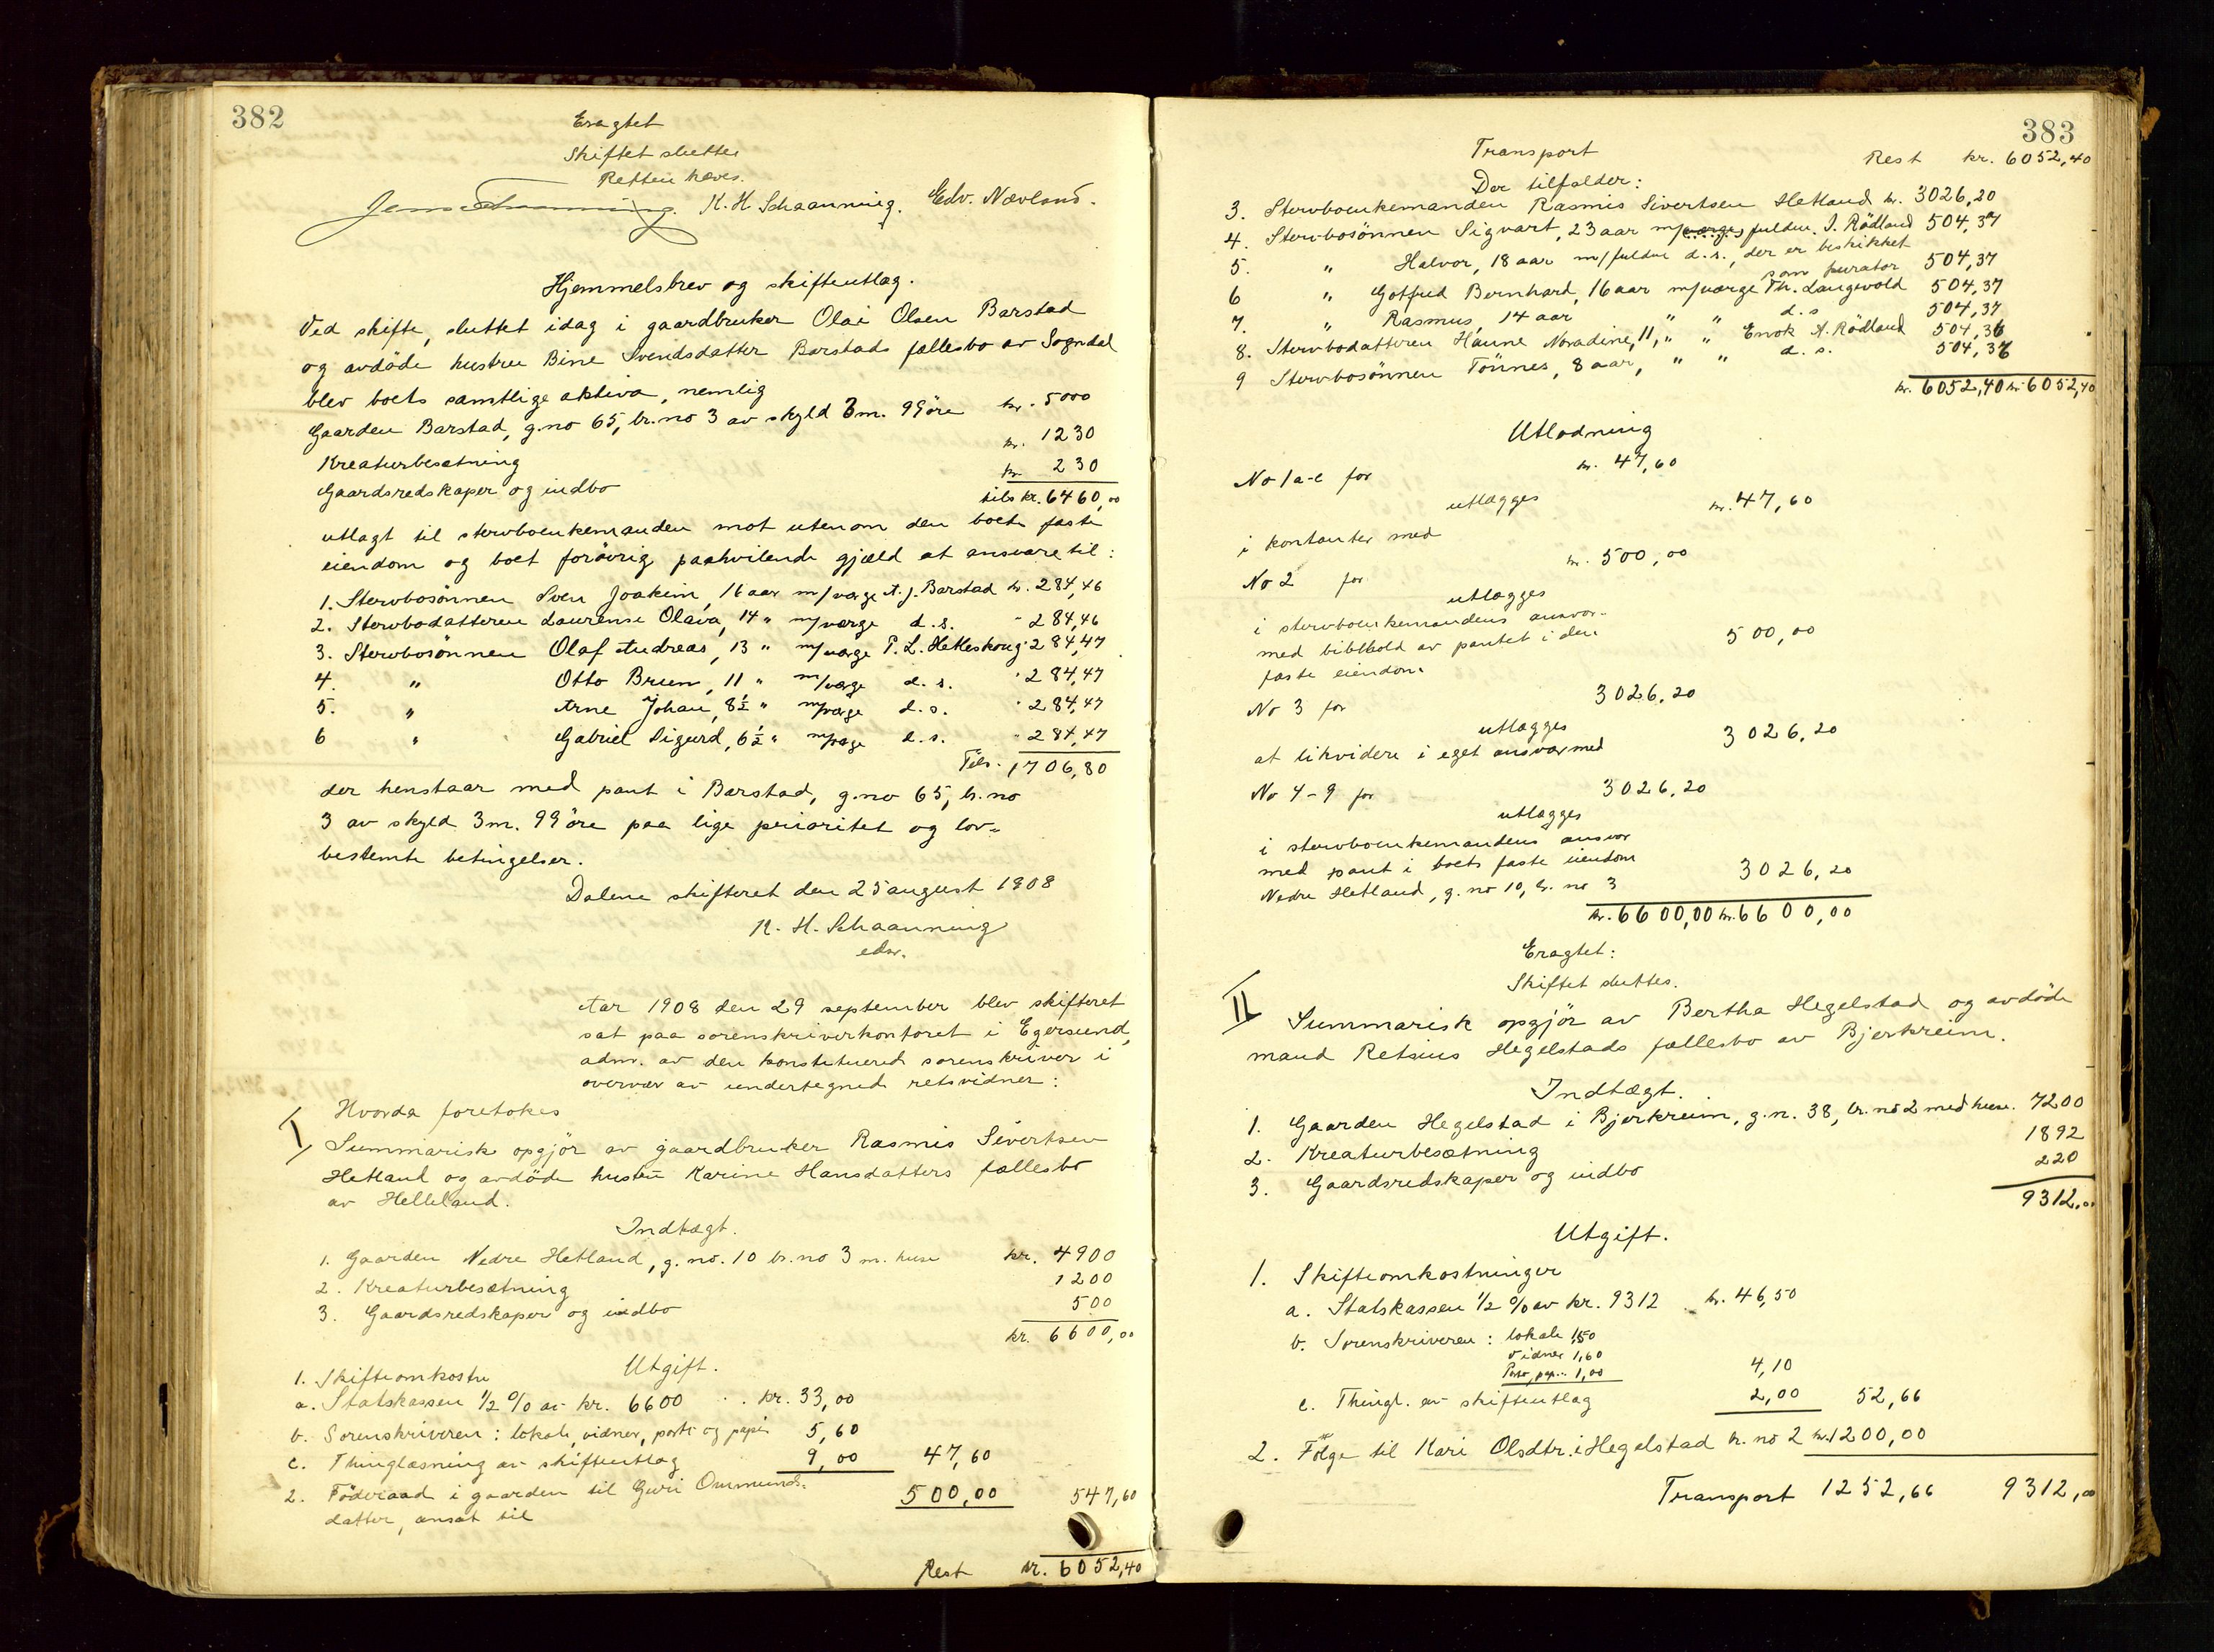 382
Eragtet
Skiftet sluttes
Retten hæves.
K. H. Schaanning. Edv. Nævland.
Hjemmelsbrev og skifteutlæg.
Ved skifte, sluttet idag i gaardbruker Olai Olsen Barstad
og avdöde hustru Bine Svendsdatter Barstads fællesbo av Sogndal
blev boets samtlige aktiva, nemlig
Gaarden Barstad, g.no 65, br.no 3 av skyld 3 m. 99 öre kr. 5000
Kreaturbesætning kr. 1230
Gaardsredskaper og indbo kr. 230
tils kr. 6460,00
utlagt til stervboenkemanden mot utenom den boets faste
eiendom og boet forövrig paahvilende gjæld at ansvare til:
1. Stervbosönnen Sven Joakim, 16 aar m/værge A. J. Barstad kr. 284,46
2. Stervbodatteren Laurense Olava, 14 " m/værge d.s. " 284,46
3. Stervbosönnen Olaf Andreas, 13 " m/værge P. L. Hetleskoug " 284,47
4. " Otto Bruun, 11 " m/værge d.s. " 284,47
5. " Arne Johan, 8½ " m/værge d.s. " 284,47
6 " Gabriel Sigurd, 6½ " m/værge d.s. " 284,47
Tils. 1706,80
der henstaar med pant i Barstad, g.no 65, br.no
3 av skyld 3 m. 99 öre paa lige prioritet og lov-
bestemte betingelser.
Dalene skifteret den 25 august 1908
K. H. Schaanning
edsv.
Aar 1908 den 29 september blev skifteret
sat paa sorenskriverkontoret i Egersund,
adm. av den konstituerede sorenskriver i
overvær av undertegnede retsvidner:
Hvorda foretokes
I Summarisk opgjör av gaardbruker Rasmis Sivertsen
Hetland og avdöde hustru Karine Hansdatters fællesbo
av Helleland.
Indtægt.
1. Gaarden Nedre Hetland, g.no. 10 br.no 3 m. huse kr. 4900
2. Kreaturbesætning 1200
3. Gaardsredskaper og indbo 500
kr. 6600,00
Utgift.
1. Skifteomkostn
a. Statskassen ½ % av kr. 6600 . . kr. 33,00
b. Sorenskriveren: lokale, vidner, porto og papir 5,60
c. Thinglæsning av skifteutlæg 9,00 47,60
2. Föderaad i gaarden til Guri Ommunds-
datter, ansat til 500,00 547,60
Rest kr. 6052,40
383
Transport Rest kr. 6052,40
Der tilfalder:
3. Stervboenkemanden Rasmis Sivertsen Hetland kr. 3026,20
4. Stervbosönnen Sigvart, 23 aar m/værge fuldm. I. Rödland 504,37
5. " Halvor, 18 aar m/fuldm d.s., der er beskikket
som kurator 504,37
6 " Gotfred Bernhard, 16 aar m/værge Th. Langevold 504,37
7. " Rasmus, 14 aar " " d.s 504,37
8. Stervbodatteren Hanne Noradine, 11, " " Enok A. Rödland 504,36
9 Stervbosönnen Tönnes, 8 aar, " " d.s. 504,36
kr. 6052,40 kr 6052,40
Utlodning
No 1a-c for kr. 47,60
utlægges
i kontanter med kr. 47,60
No 2 for kr. 500,00
utlægges
i stervboenkemandens ansvar
med bibehold av pantet i den
faste eiendom 500,00
No 3 for 3026,20
utlægges
at likvidere i eget ansvar med 3026,20
No 4-9 for 3026,20
utlægges
i stervboenkemandens ansvar
med pant i boets faste eiendom
Nedre Hetland, g.no 10, br. no 3 3026,20
kr. 6600,00 kr. 6600,00
Eragtet:
Skiftet sluttes.
II Summarisk opgjör av Bertha Hegelstad og avdöde
mand Retsius Hegelstads fællesbo av Bjerkreim.
Indtægt.
1. Gaarden Hegelstad i Bjerkreim, g.n. 38, br.no 2 med huse. 7200
2. Kreaturbesætning 1892
3. Gaardsredskaper og indbo 220
9312,00
Utgift.
1. Skifteomkostninger
a. Statskassen ½ % av kr. 9312 . kr. 46,50
b. Sorenskriveren: lokale 1,50
vidner 1,60
Porto, pap... 1,00 4,10
c. Thingl. av skifteutlæg 2,00 52,66
2. Følge til Kari Olsdtr. i Hegelstad br. no 2 kr. 1200,00
Transport 1252,66 9312,00